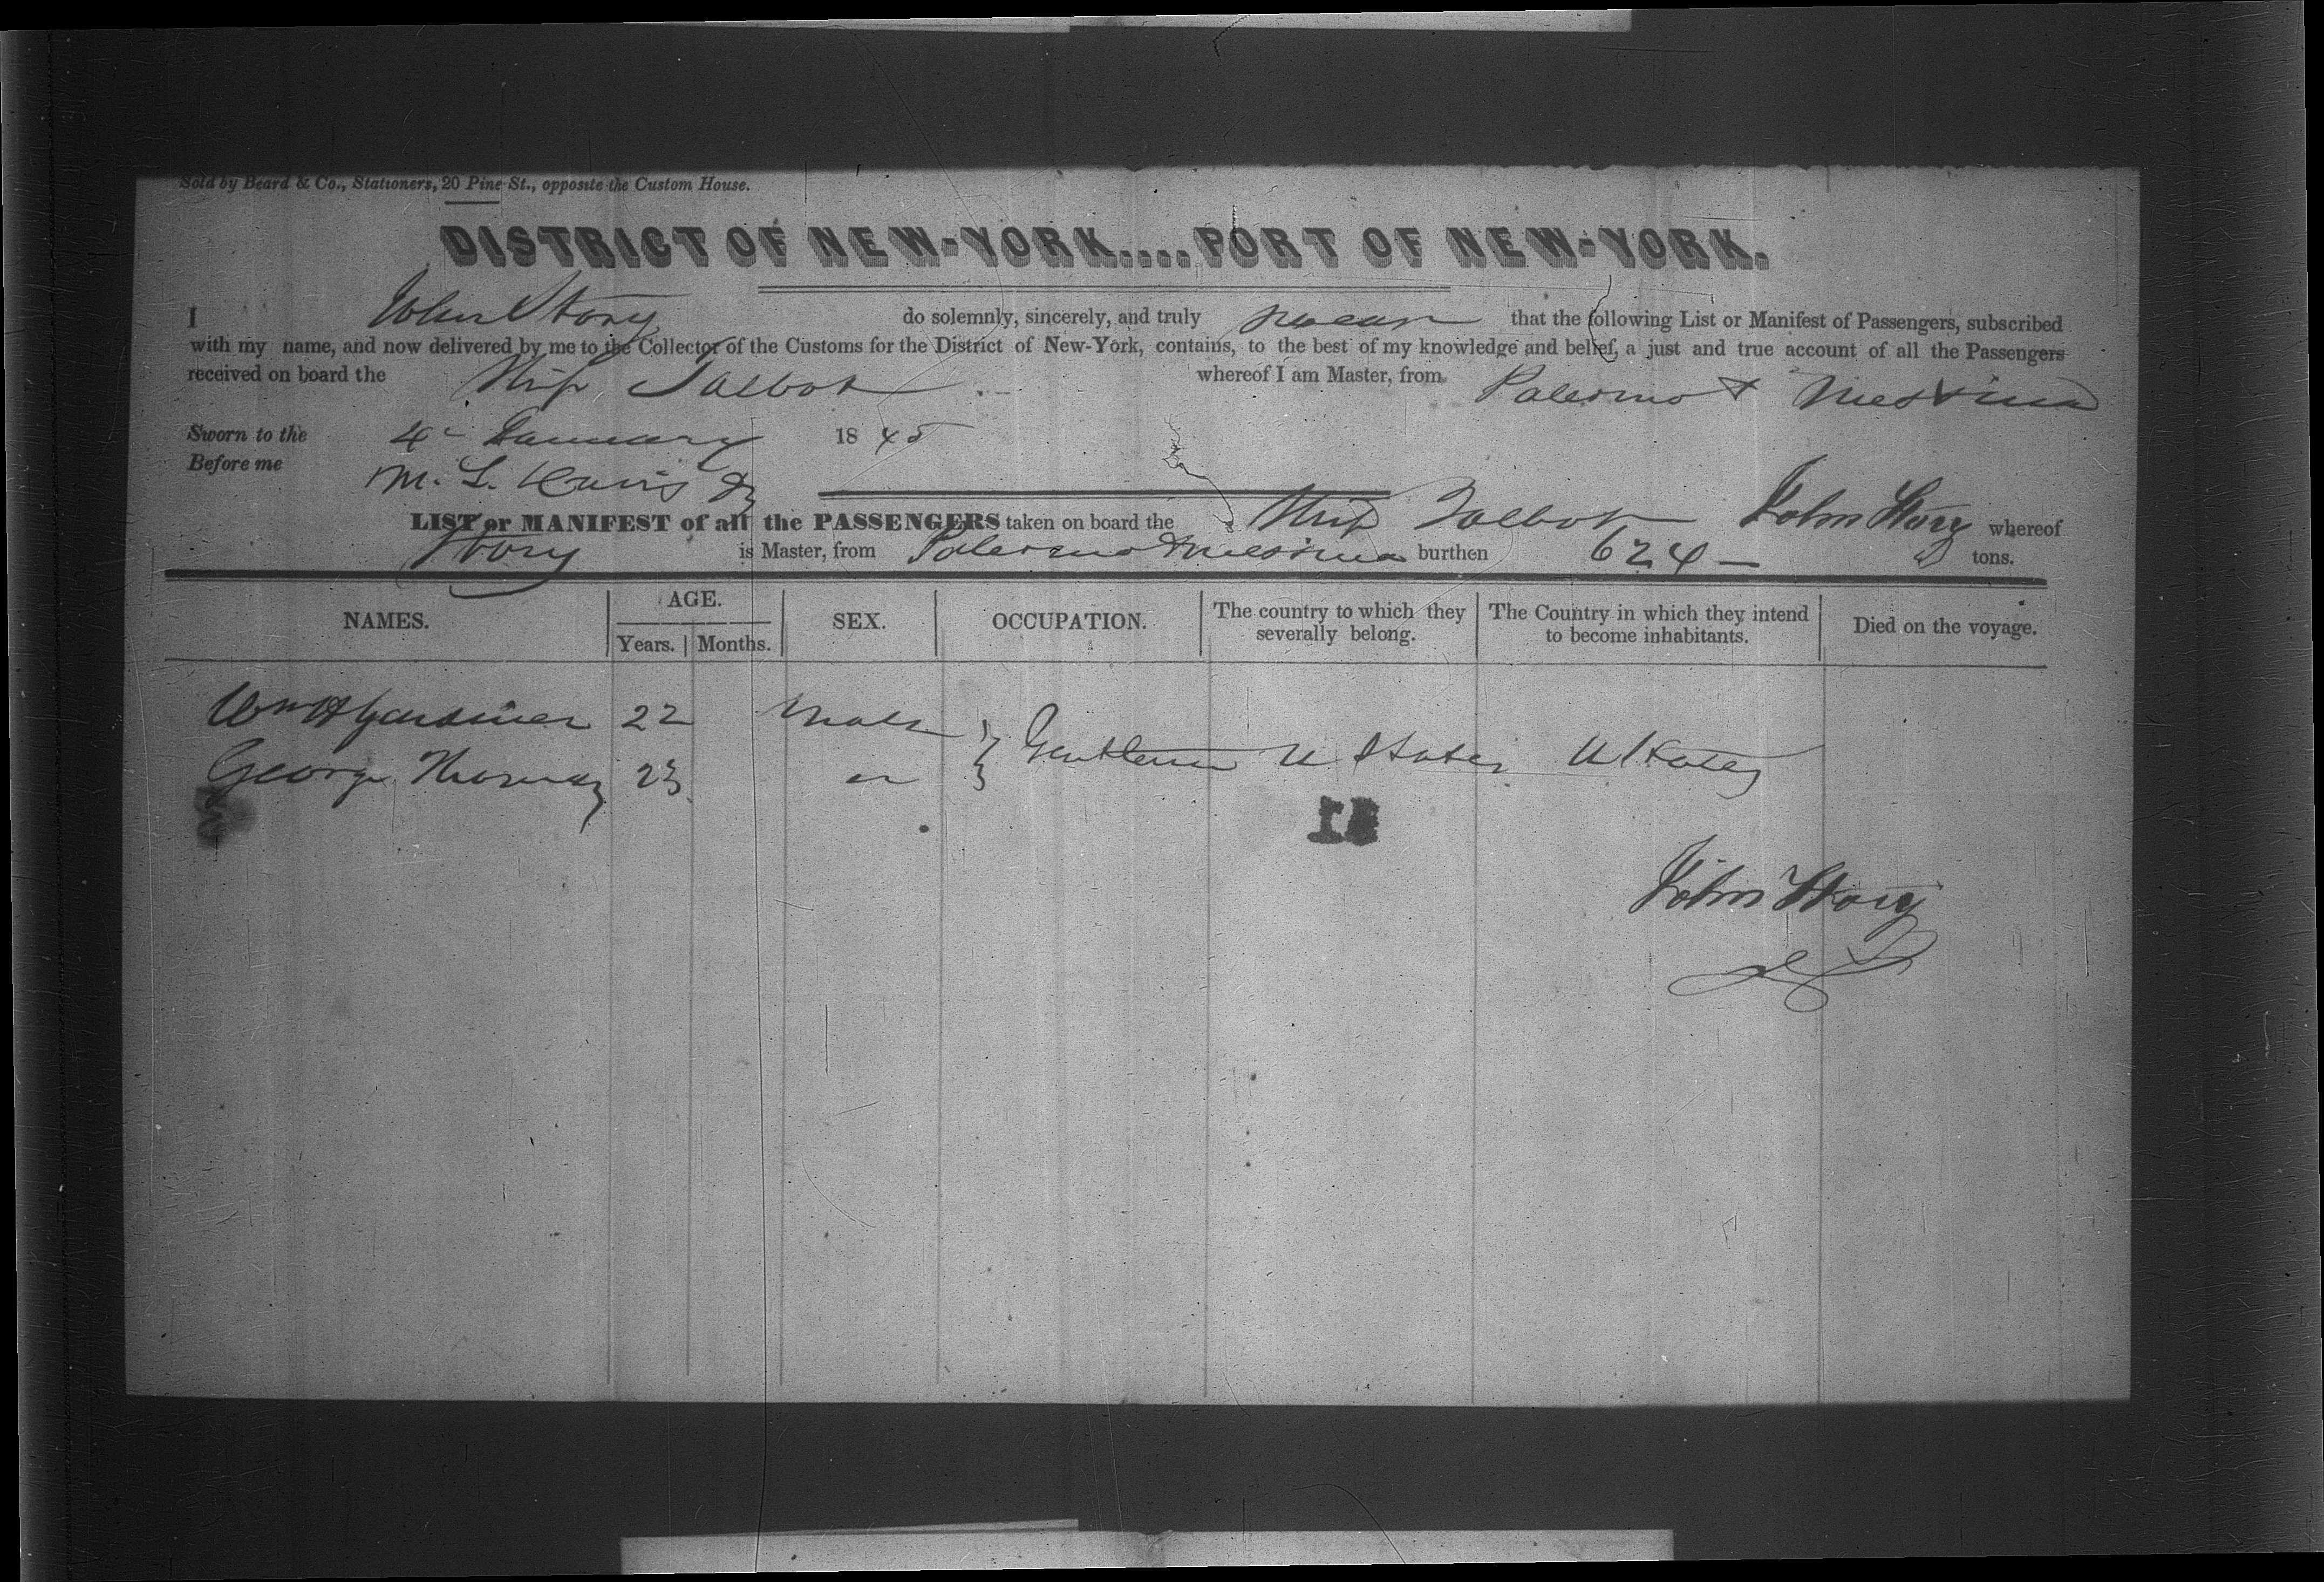 Sold by Beard & Co., Stationers, 20 Pine St., opposite the Custom House.
DISTRICT OF NEW-YORK....PORT OF NEW-YORK.
I John Story do solemnly, sincerely, and truly swear that the following List or Manifest of Passengers, subscribed
with my name, and now delivered by me to the Collector of the Customs for the District of New-York, contains, to the best of my knowledge and belief, a just and true account of all the Passengers
received on board the Ship Talbot whereof I am Master, from Palermo & Messina
Sworn to the 4 January 1845
Before me M. L. Davis
LIST or MANIFEST of all the PASSENGERS taken on board the Ship Talbot John Story whereof
Story is Master, from Palermo & Messina burthen 624 tons.
NAMES. AGE. SEX. OCCUPATION. The country to which they severally belong. The Country in which they intend to become inhabitants. Died on the voyage.
Years. Months.
Wm H Gardiner 22 Male
George 23 Gentlemen U States U States
John Story